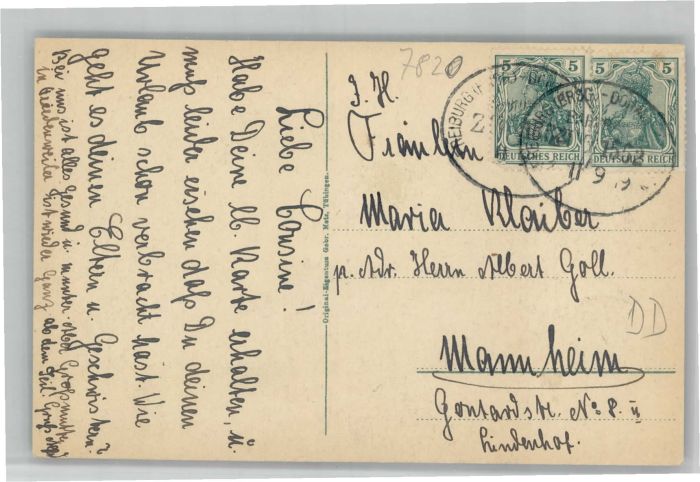 Liebe Cousine!
Habe Deine lb. Karte erhalten, u.
muß leider ersehen daß Du deinen
Urlaub schon verbracht hast. Wie
geht es deinen Eltern u. Geschwistern?
Bei uns ist alles gesund u. munter. Aber Großmutter
in ist wieder ganz ab dem Seil! Gruß
Original-Eigentum Gebr. Metz, Tübingen.
7820
5 5 5 5
DEUTSCHES REICH DEUTSCHES REICH
I. H.
Fräulein
Maria Klaiber
p. Adr. Herrn Albert Goll.
Mannheim
Gontardstr. No 8. II
Lindenhof.
DD